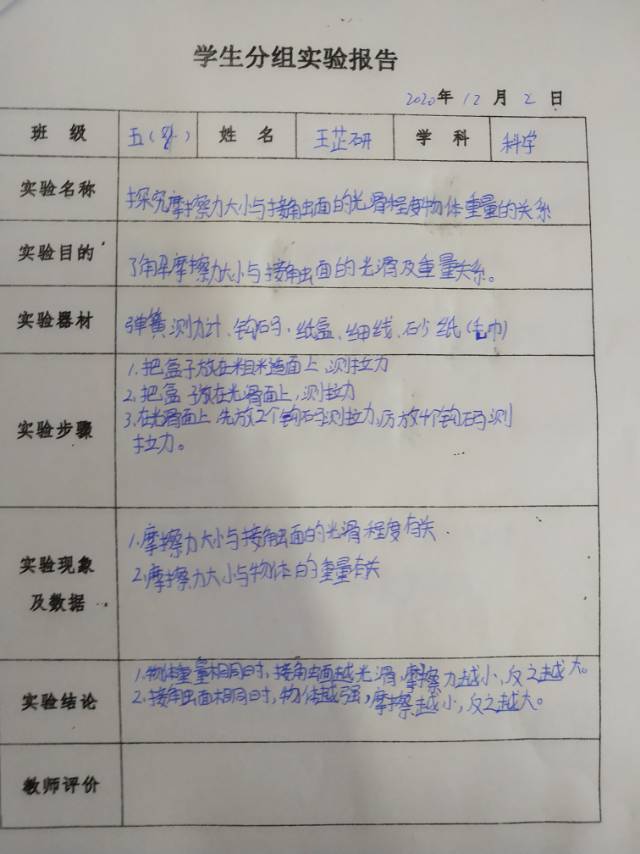 学生分组实验报告
2020年 12 月 2 日
班 级 五( ) 姓 名 王芷研 学 科 科学
实验名称 探究摩擦力大小与接触面的光滑程度物体重量的关系
实验目的 了解摩擦力大小与接触面的光滑及重量关系。
实验器材 弹簧测力计、钩码、纸盒、细线、砂纸(毛巾)
实验步骤
1.把盒子放在粗米造面上,测拉力
2.把盒子放在光滑面上,测拉力
3.在光滑面上,先放2个钩码测拉力,后放4个钩码测
拉力。
实验现象
及数据
1.摩擦力大小与接触面的光滑程度有关.
2.摩擦力大小与物体的重量有关
实验结论
1.物体重量相同时,接触面越光滑,摩擦力越小,反之越大。
2.接触面相同时,物体越强,摩擦越小,反之越大。
教师评价